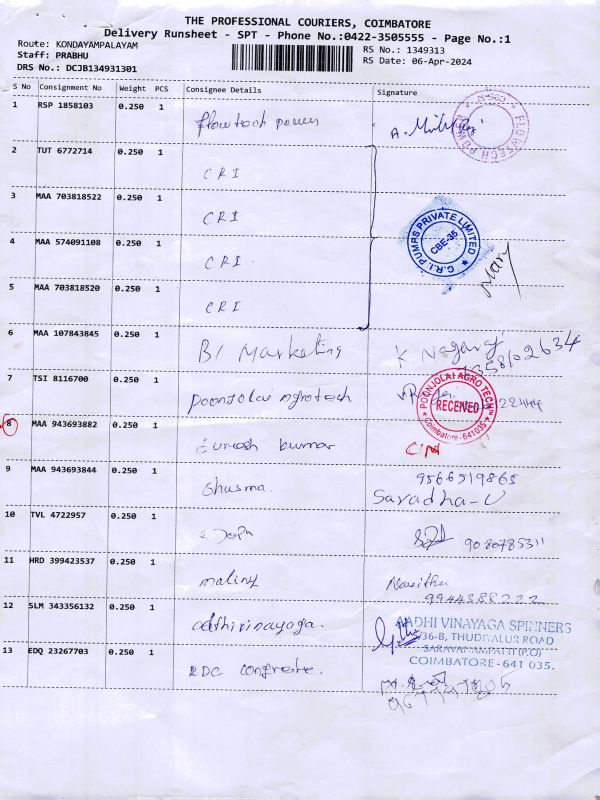 THE PROFESSIONAL COURIERS, COIMBATORE
Delivery Runsheet - SPT - Phone No.:0422-3505555 - Page No.:1
Route: KONDAYAMPALAYAM
Staff: PRABHU
DRS No.: DCJB134931301
RS No.: 1349313
RS Date: 06-Apr-2024
S No Consignment No Weight PCS Consignee Details Signature
1 RSP 1858103 0.250 1 flowtech power
2 TUT 6772714 0.250 1 CRI
3 MAA 703818522 0.250 1 CRI
C.R.I. PUMPS PRIVATE LIMITED
CBE-35
4 MAA 574091108 0.250 1 CRI
Mary
5 MAA 703818520 0.250 1 CRI
6 MAA 107843845 0.250 1 B1 Marketing K Nagaraj
7 TSI 8116700 0.250 1 Poonjolai Agrotech
POONJOLAI AGRO TECH
RECEIVED
Coimbatore-641035
8 MAA 943693882 0.250 1 Suresh kumar
9 MAA 943693844 0.250 1 Shusma. 9566519865
Saradha-U
10 TVL 4722957 0.250 1 9080785311
11 HRD 399423537 0.250 1 maliny Navitha
9944388222
12 SLM 343356132 0.250 1 adhivinayaga.
AADHI VINAYAGA SPINNERS
/36-B, THUDIYALUR ROAD
SARAVANAMPATTI(P.O)
COIMBATORE-641 035.
13 EDQ 23267703 0.250 1 RDC Congrete.